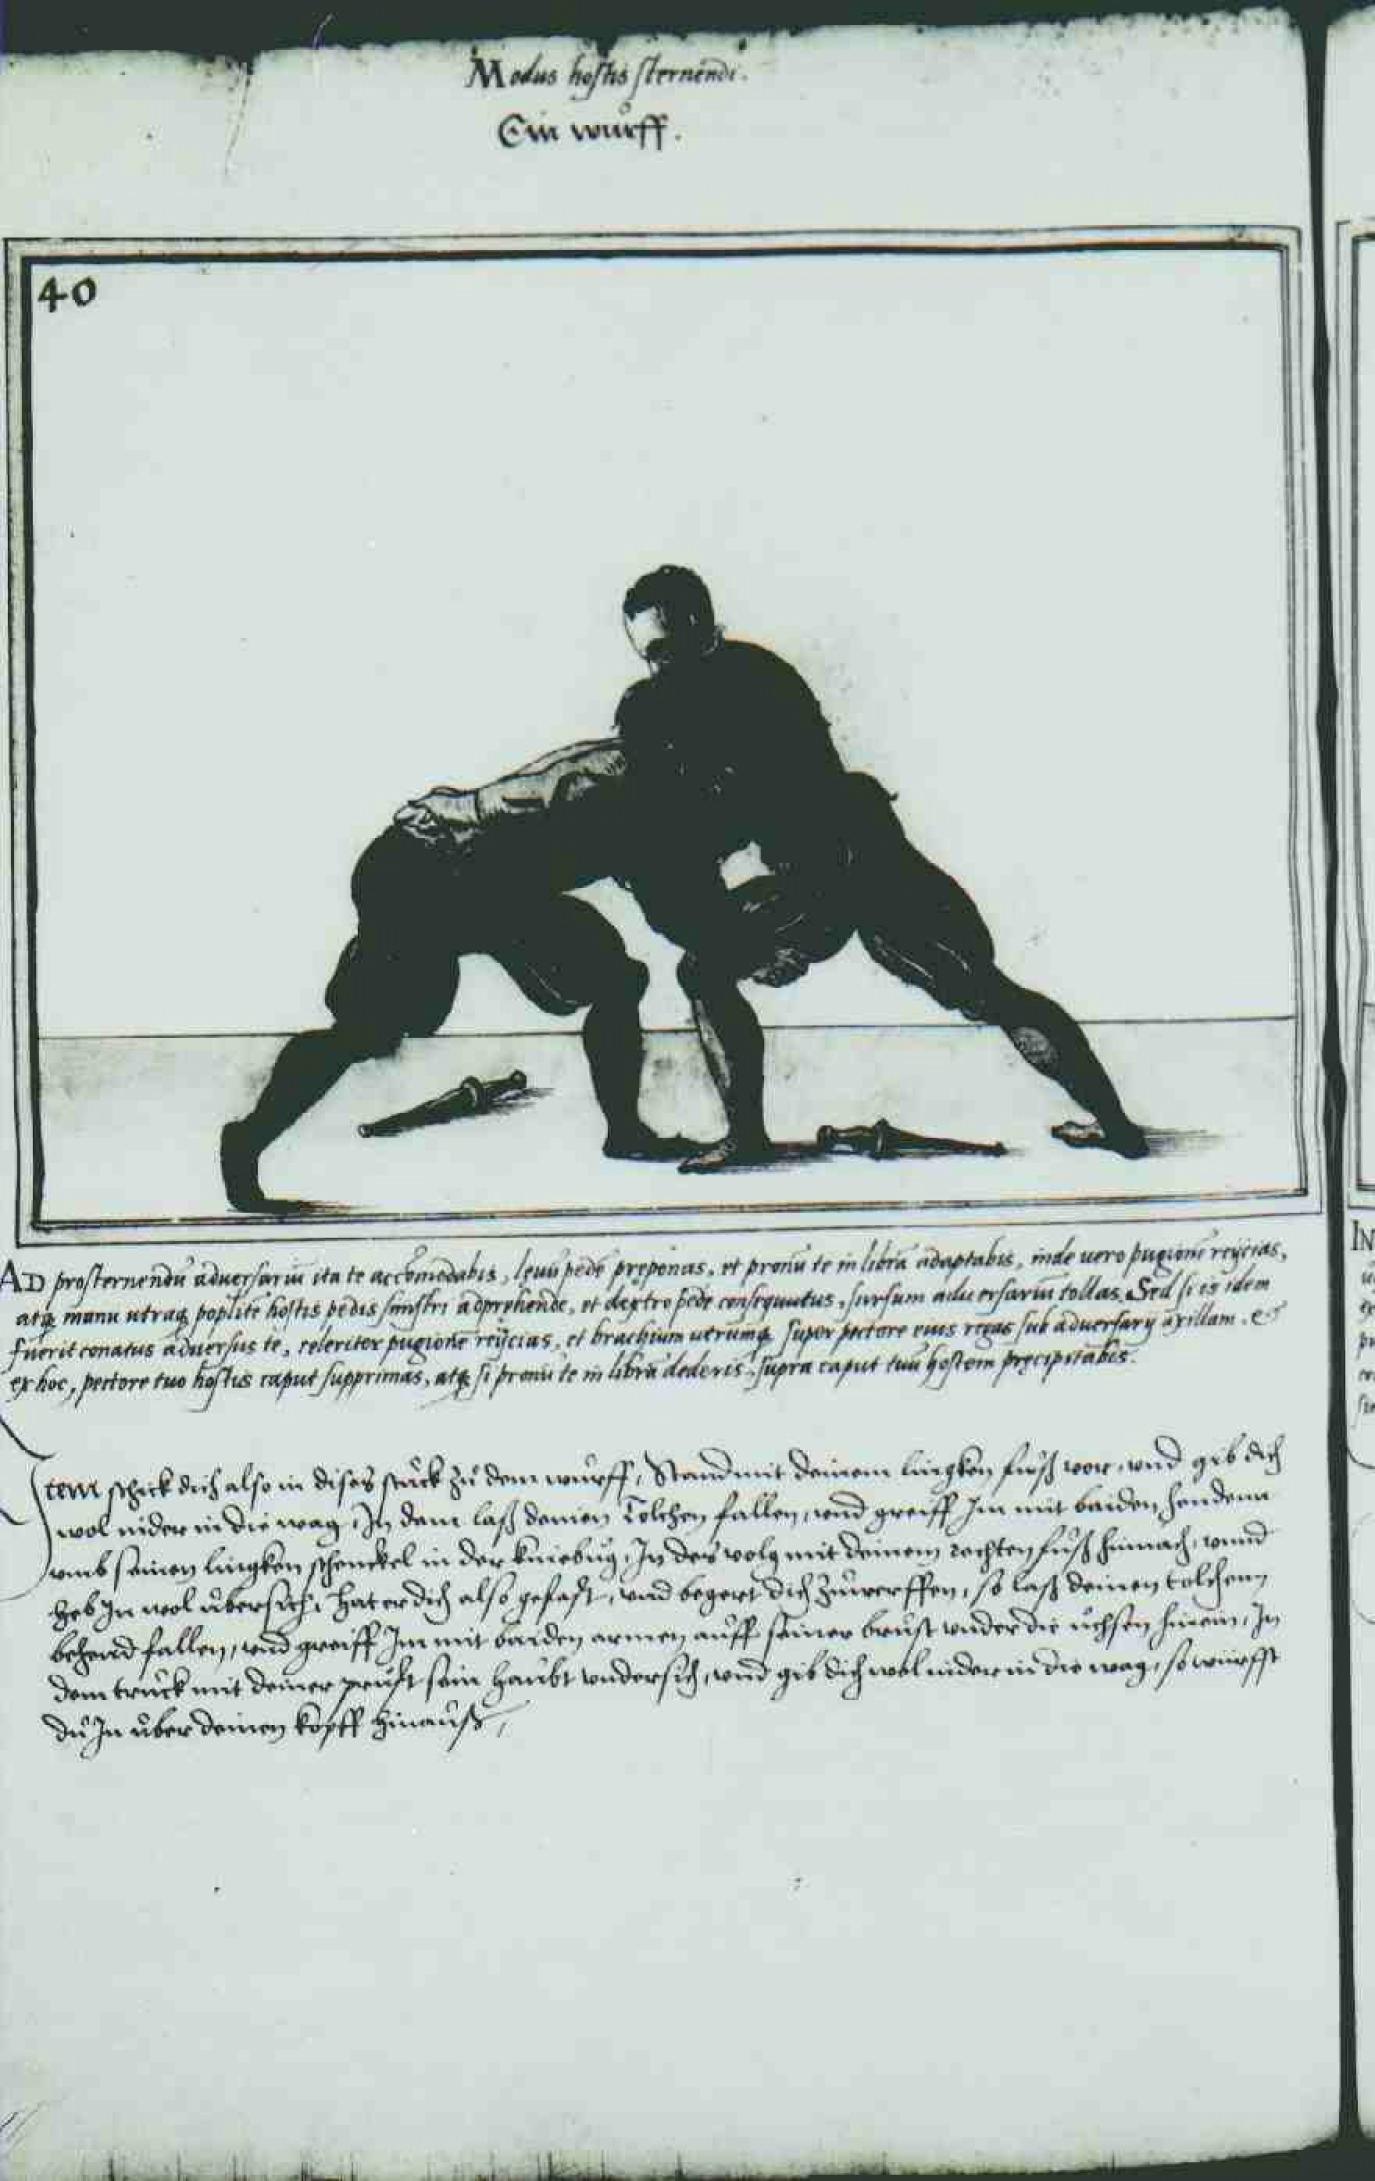 Modus hostis sternendi.
Ein wurff.
40
AD prosternendũ adversariũ ita te accõmodabis, lęvũ pedẽ pręponas, et pronũ te in librã adaptabis, inde vero pugionẽ reÿcias,
atq manu utraq poplitẽ hostis pedis sinistri adprehende, et dextro pede consequutus, sursum adversariũ tollas. Sed si is idem
fuerit conatus adversus te, celeriter pugionẽ reÿcias, et brachium utrumq super pectore eius regas sub adversarÿ axillam. &
ex hoc, pectore tuo hostis caput supprimas, atq si pronũ te in librã dederis, supra caput tuũ hostem pręcipitabis.
Item schick dich also in dises stuck zů dem wurff, Stand mit deinem lingken fůß vor, und gib dich
wol nider in die wag, In dem laß deinen Tolchen fallen, und greiff Im mit baiden henden
umb seinen lingken schenckel in der kniebug, In des volg mit deinem rechten fůß hinnach, unnd
heb In wol ubersich, hat er dich also gefast, und begert dich zůwerffen, so laß deinen tolchenn
behend fallen, und greiff Im mit baiden armen auff seiner brust under die uchsen hinein, In
dem truck mit deiner prust sein haubt undersich, und gib dich wol nider in die wag, so wurffst
du In uber deinen kopff hinauß,
IN